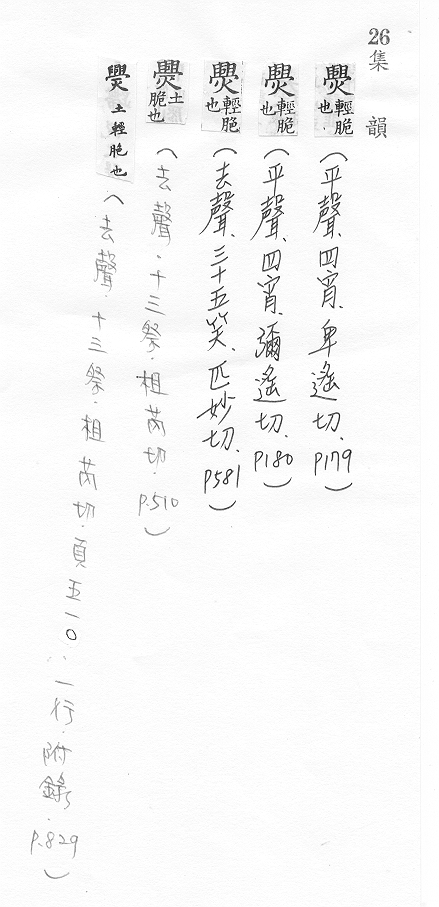 26
集韻
㷸輕脆也(平聲、四宵、卑遙切、P179)
㷸輕脆也(平聲、四宵、彌遙切、P180)
㷸輕脆也(去聲、三十五笑、匹妙切、P581)
㷸土脆也(去聲.十三祭.祖芮切.P.510)
㷸土輕脆也(去聲.十三祭.祖芮切.頁五一〇:一行.附錄.P.829)